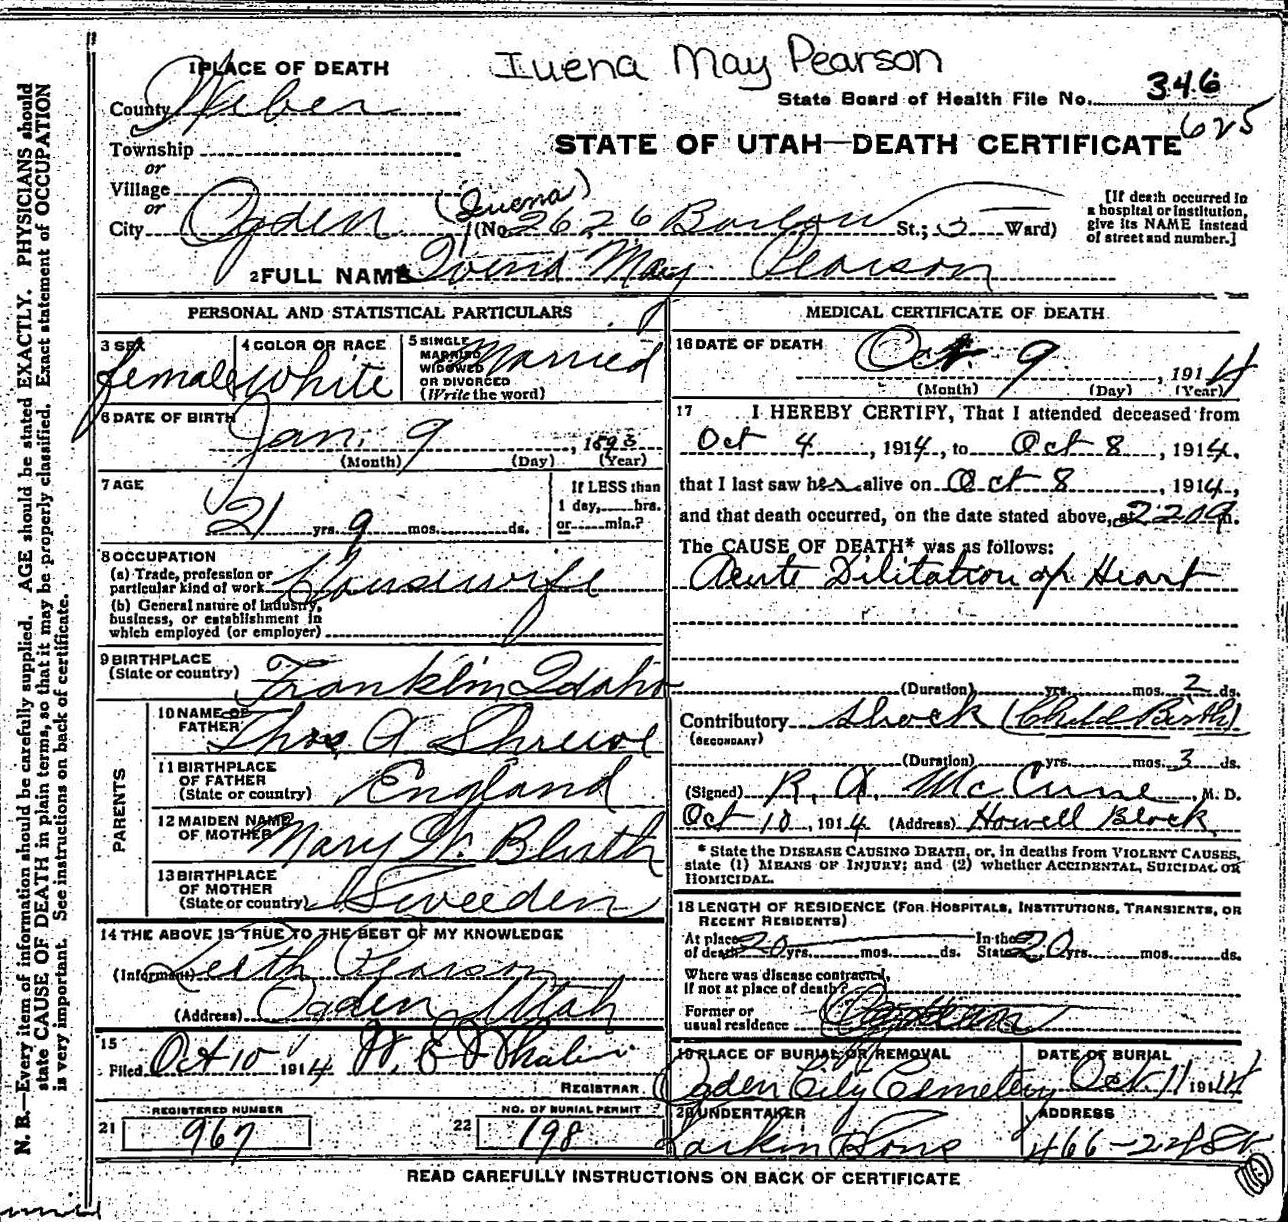 Iuena May Pearson
1 PLACE OF DEATH
County Weber
State Board of Health File No. 346
625
STATE OF UTAH—DEATH CERTIFICATE
Township
or
Village
or
(Iuena)
City Ogden (No. 2626 Barlow St.; 3 Ward)
[If death occurred in
a hospital or institution,
give its NAME instead
of street and number.]
2 FULL NAME May Pearson
PERSONAL AND STATISTICAL PARTICULARS
3 SEX female
4 COLOR OR RACE white
5 SINGLE
MARRIED
WIDOWED
OR DIVORCED
(Write the word)
Married
6 DATE OF BIRTH
Jan. 9, 1893
(Month) (Day) (Year)
7 AGE
21 yrs. 9 mos. ds.
If LESS than
1 day, hrs.
or min.?
8 OCCUPATION
(a) Trade, profession or
particular kind of work Housewife
(b) General nature of industry,
business, or establishment in
which employed (or employer)
9 BIRTHPLACE
(State or country) Franklin Idaho
PARENTS
10 NAME OF
FATHER Thos A
11 BIRTHPLACE
OF FATHER
(State or country) England
12 MAIDEN NAME
OF MOTHER Mary
13 BIRTHPLACE
OF MOTHER
(State or country) Sweeden
14 THE ABOVE IS TRUE TO THE BEST OF MY KNOWLEDGE
(Informant) Leith Pearson
(Address) Ogden Utah
15
Filed Oct 10 1914 W. E.
REGISTRAR
REGISTERED NUMBER
21 967
NO. OF BURIAL PERMIT
22 198
MEDICAL CERTIFICATE OF DEATH
16 DATE OF DEATH
Oct. 9, 1914
(Month) (Day) (Year)
17 I HEREBY CERTIFY, That I attended deceased from
Oct 4, 1914, to Oct 8, 1914.
that I last saw her alive on Oct 8, 1914,
and that death occurred, on the date stated above, at m.
The CAUSE OF DEATH* was as follows:
Acute Dilitation of Heart
(Duration) yrs. mos. 2 ds.
Contributory Shock (Child Birth)
(SECONDARY)
(Duration) yrs. mos. 3 ds.
(Signed) R. A. McCune, M. D.
Oct 10, 1914 (Address) Howell Block
* State the DISEASE CAUSING DEATH, or, in deaths from VIOLENT CAUSES,
state (1) MEANS OF INJURY; and (2) whether ACCIDENTAL, SUICIDAL OR
HOMICIDAL.
18 LENGTH OF RESIDENCE (FOR HOSPITALS, INSTITUTIONS, TRANSIENTS, OR
RECENT RESIDENTS)
At place
of death 20 yrs. mos. ds.
In the
State 20 yrs. mos. ds.
Where was disease contracted,
if not at place of death?
Former or
usual residence
19 PLACE OF BURIAL OR REMOVAL
Ogden City Cemetery
DATE OF BURIAL
Oct. 11 1914
20 UNDERTAKER
Larkin & Sons
ADDRESS
466-24 St
READ CAREFULLY INSTRUCTIONS ON BACK OF CERTIFICATE
N. B.—Every item of information should be carefully supplied. AGE should be stated EXACTLY. PHYSICIANS should
state CAUSE OF DEATH in plain terms, so that it may be properly classified. Exact statement of OCCUPATION
is very important. See instructions on back of certificate.